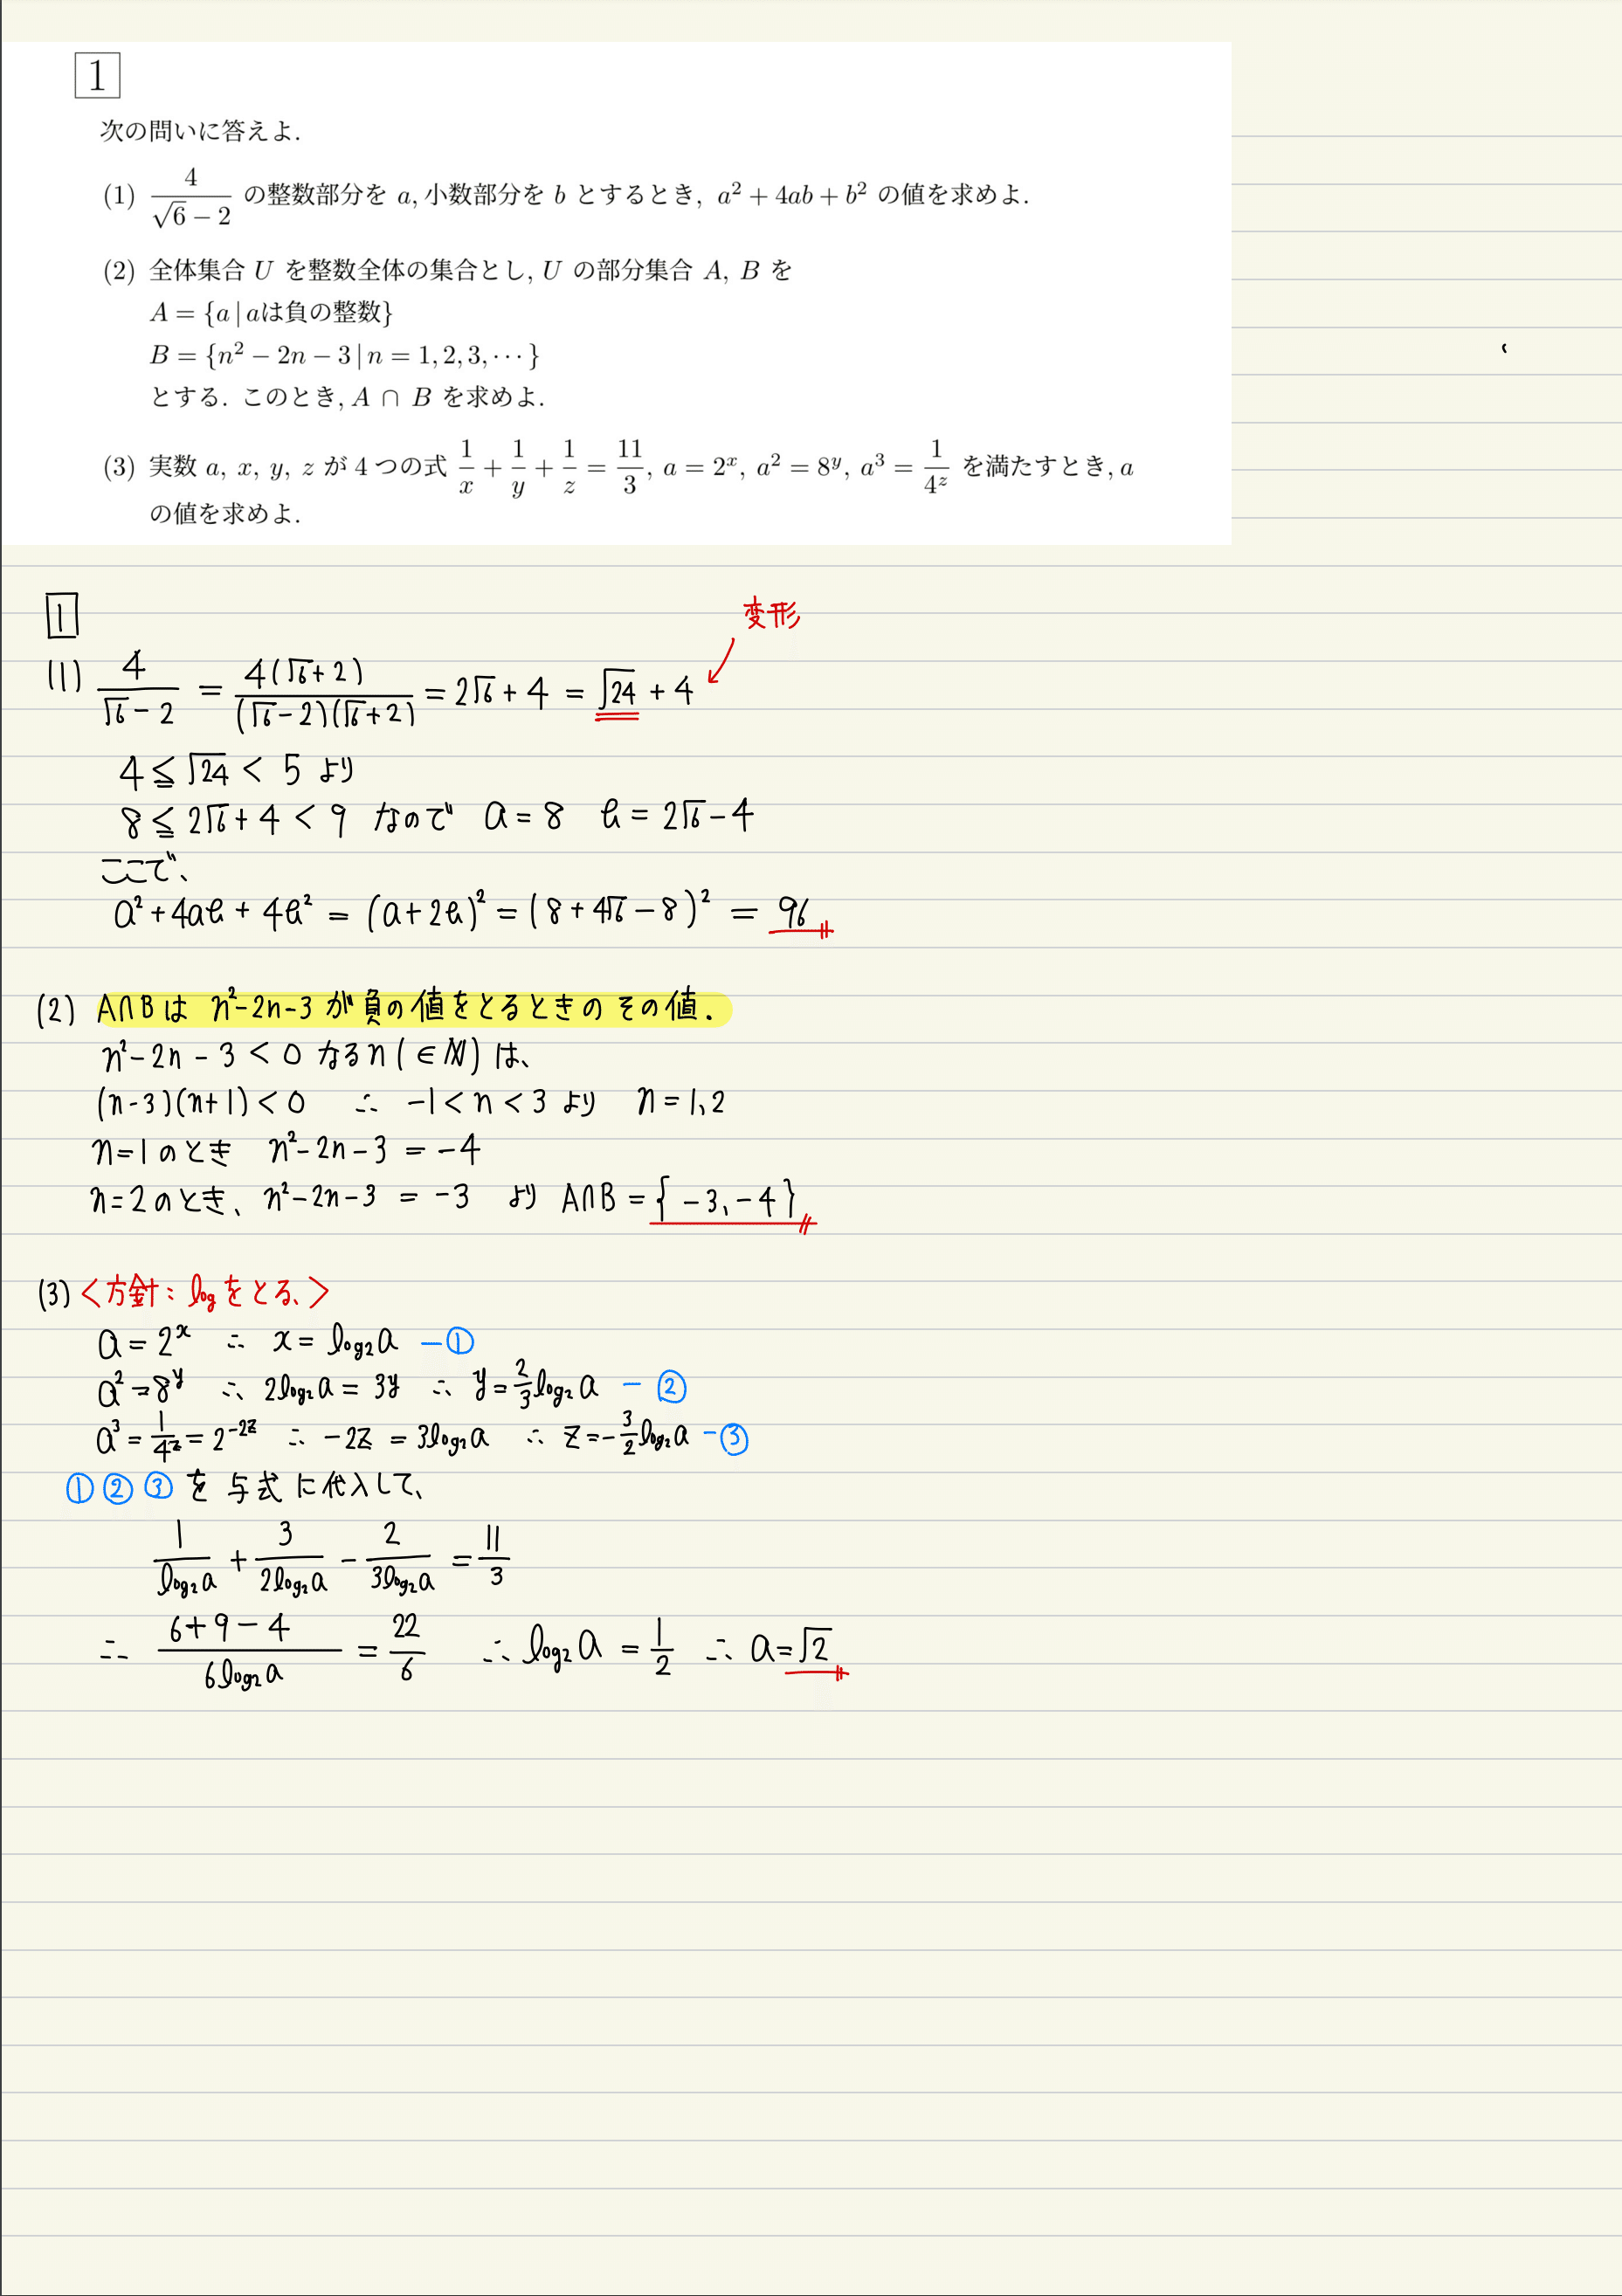 1
次の問いに答えよ.
(1) 4/(√6 − 2) の整数部分を a, 小数部分を b とするとき, a² + 4ab + b² の値を求めよ.
(2) 全体集合 U を整数全体の集合とし, U の部分集合 A, B を
A = {a | aは負の整数}
B = {n² − 2n − 3 | n = 1, 2, 3, ⋯ }
とする. このとき, A ∩ B を求めよ.
(3) 実数 a, x, y, z が 4 つの式 1/x + 1/y + 1/z = 11/3, a = 2ˣ, a² = 8ʸ, a³ = 1/4ᶻ を満たすとき, a
の値を求めよ.
1
変形
(1) 4/(√6 − 2) = 4(√6 + 2)/((√6 − 2)(√6 + 2)) = 2√6 + 4 = √24 + 4
4 ≦ √24 < 5 より
8 ≦ 2√6 + 4 < 9 なので a = 8 b = 2√6 − 4
ここで、
a² + 4ab + 4b² = (a + 2b)² = (8 + 4√6 − 8)² = 96
(2) A∩Bは n² − 2n − 3 が負の値をとるときのその値.
n² − 2n − 3 < 0 なる n (∈ ℕ) は、
(n − 3)(n + 1) < 0 ∴ −1 < n < 3 より n = 1, 2
n = 1 のとき n² − 2n − 3 = −4
n = 2 のとき、n² − 2n − 3 = −3 より A∩B = { −3, −4 }
(3) <方針：log をとる、>
a = 2ˣ ∴ x = log₂a −①
a² = 8ʸ ∴ 2log₂a = 3y ∴ y = 2/3 log₂a −②
a³ = 1/4ᶻ = 2^(−2z) ∴ −2z = 3log₂a ∴ z = −3/2 log₂a −③
① ② ③ を与式に代入して、
1/(log₂a) + 3/(2log₂a) − 2/(3log₂a) = 11/3
∴ (6 + 9 − 4)/(6log₂a) = 22/6 ∴ log₂a = 1/2 ∴ a = √2